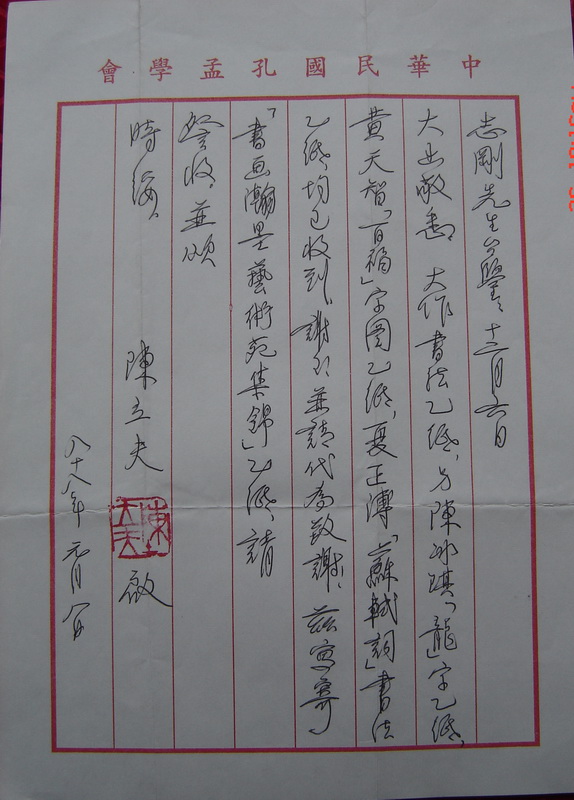 中華民國孔孟學會
志剛先生台鑒：十二月六日
大函敬悉。大作書法乙紙，另陳冰琪「龍」字乙紙，
黃天智「百福」字圖乙紙，夏正溥「蘇軾詞」書法
乙紙，均已收到，謝謝，並請代為致謝。茲寫寄
「書画瀚墨藝術苑集錦」乙紙，請
詧收。並頌
時綏。
陳立夫 啟
八十八年元月八日
陳立夫